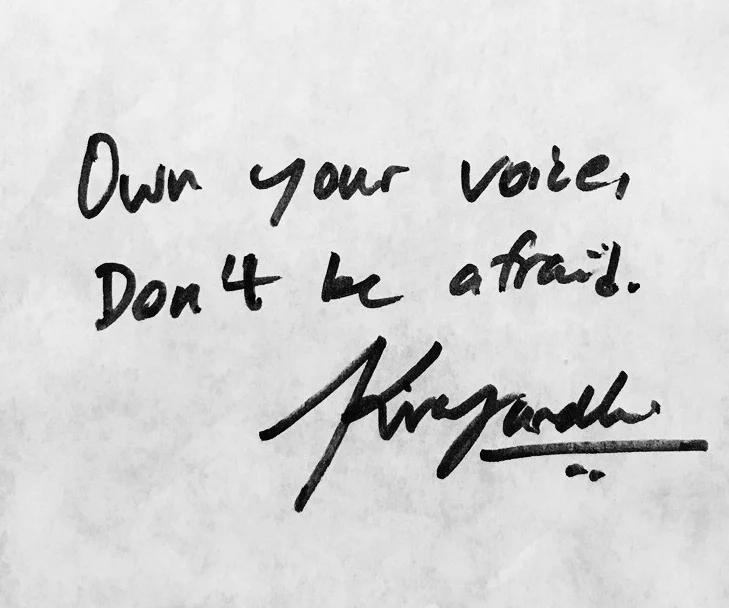 Own your voice,
Don't be afraid.